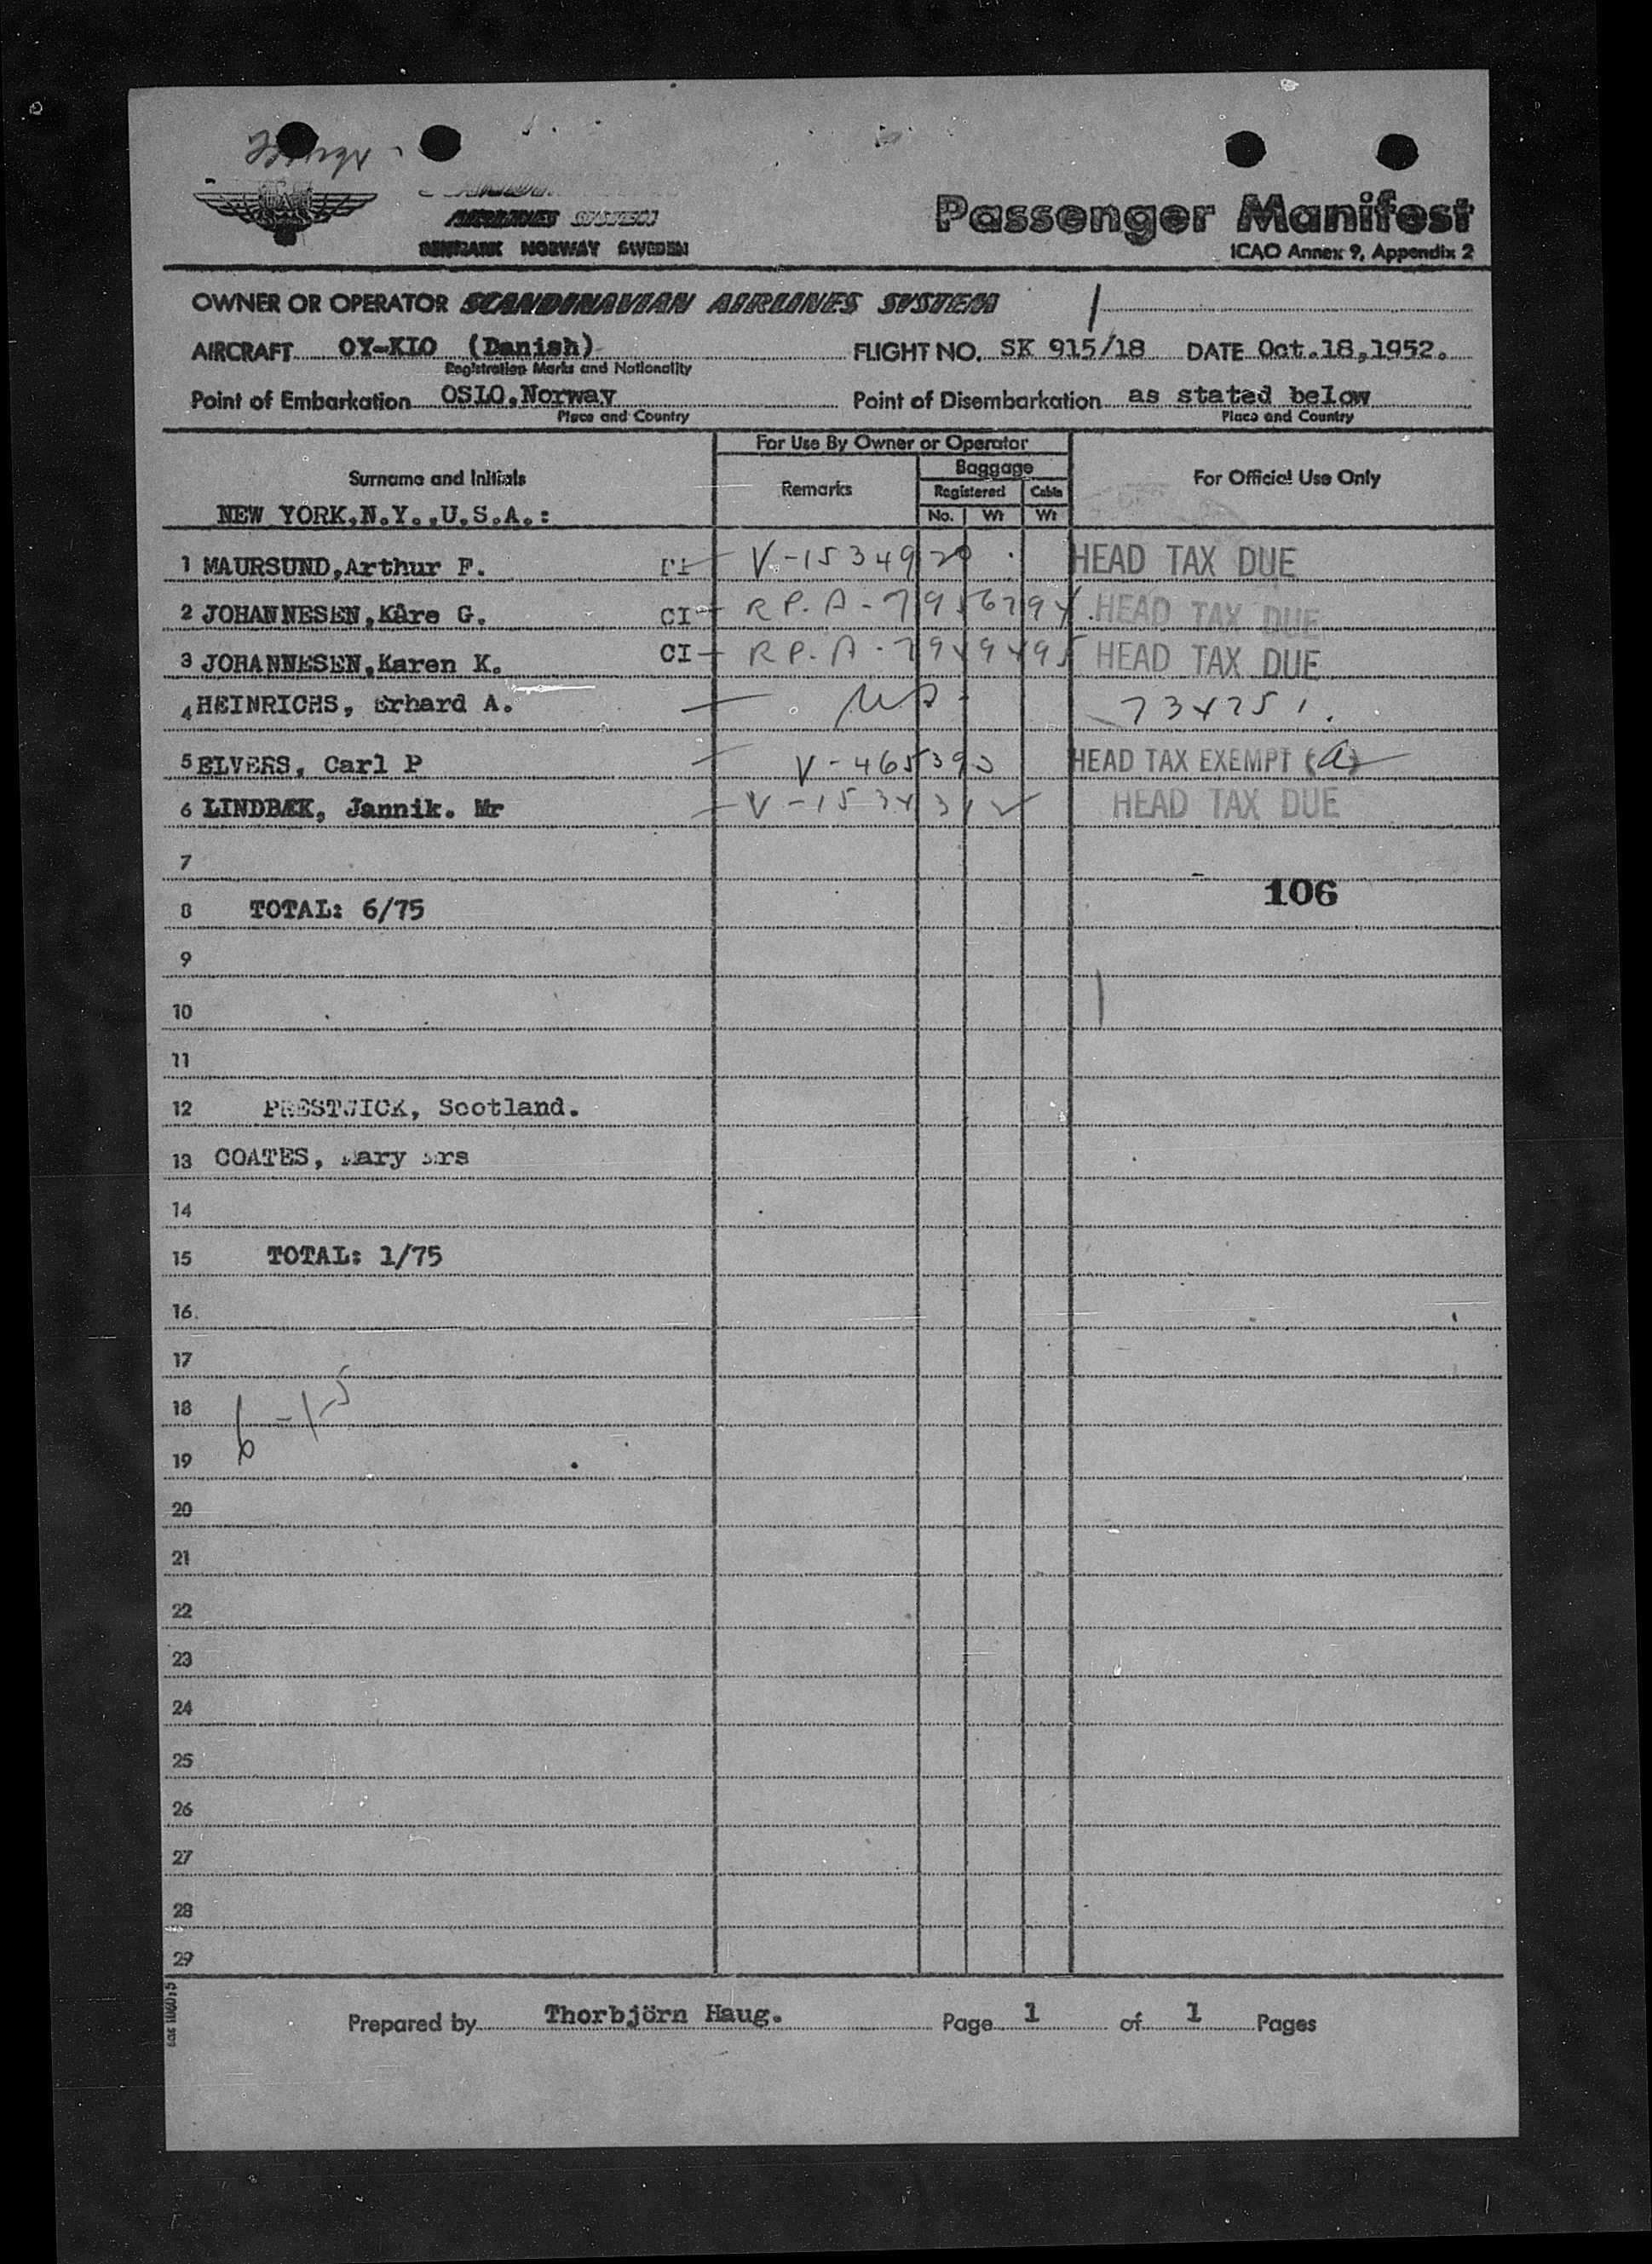 AIRLINES SYSTEM
DENMARK NORWAY SWEDEN
Passenger Manifest
ICAO Annex 9, Appendix 2
OWNER OR OPERATOR SCANDINAVIAN AIRLINES SYSTEM
AIRCRAFT OY-KIO (Danish) FLIGHT NO. SK 915/18 DATE Oct.18,1952.
Registration Marks and Nationality
Point of Embarkation OSLO,Norway Point of Disembarkation as stated below
Place and Country Place and Country
For Use By Owner or Operator
Surname and Initials Remarks Baggage For Official Use Only
Registered Cabin
NEW YORK,N.Y.,U.S.A.: No. Wt Wt
1 MAURSUND,Arthur F. V-1534920 HEAD TAX DUE
2 JOHANNESEN,Kåre G. CI RP.A-7956794 HEAD TAX DUE
3 JOHANNESEN,Karen K. CI RP.A-7949495 HEAD TAX DUE
4 HEINRICHS, Erhard A. 734751.
5 ELVERS, Carl P V-465393 HEAD TAX EXEMPT (a)
6 LINDBÆK, Jannik. Mr V-1534312 HEAD TAX DUE
7
106
8 TOTAL: 6/75
9
10
11
12 PRESTWICK, Scotland.
13 COATES, Mary Mrs
14
15 TOTAL: 1/75
16.
17
18
6-1-5
19
20
21
22
23
24
25
26
27
28
29
Prepared by Thorbjörn Haug. Page 1 of 1 Pages